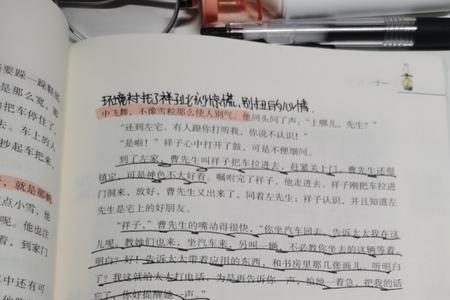 要踩一踩鞋
是那么宽,能
把车停住了,
去。车上的人
抄起车把来,
,就是那辆
点小雪,他
呢。他也注
着,到家门
中还有可
环境衬托了祥子此刻惊慌,别扭的心情。
中飞舞,不像雪粒那么使人别气。他回头问了声:“上哪儿,先生?”
“还到左宅。有人跟你打听我,你说不认识!”
“是啦!”祥子心中打开了鼓,可是不便细问。
到了左家,曹先生叫祥子把车拉进去,赶紧关上门。曹先生还很
镇定,可是神色不大好看。嘱咐完了祥子,他走进去。祥子刚把车拉进
门洞来,放好,曹先生又出来了,同着左先生;祥子认识,并且知道左
先生是宅上的好朋友。
“祥子,”曹先生的嘴动得很快,“你坐汽车回去。告诉太太我在这
儿呢。教她们也来,坐汽车来,另叫一辆,不必教你坐去的这辆等着。
明白?好!告诉太太带着应用的东西,和书房里那几张画儿。听明白
了?我这就给太太打电话,为是再告诉你一声,怕她一着急,把我的话
忘了,你好提醒她一声。”